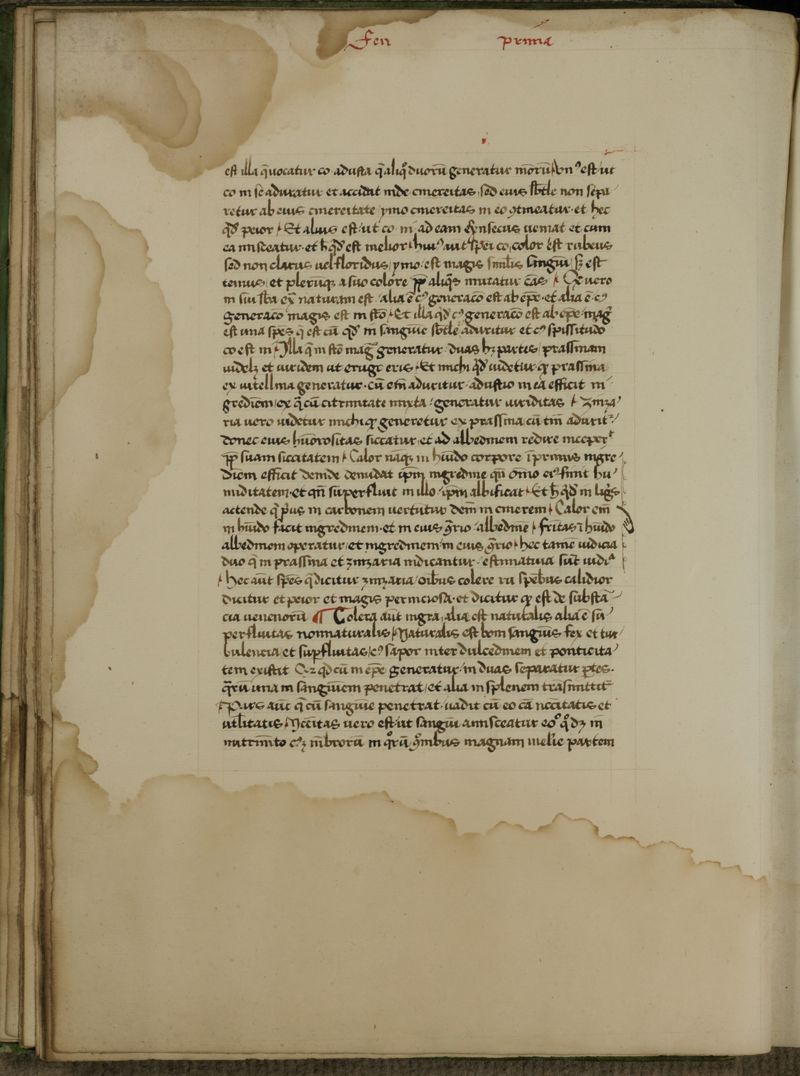 Fen prima
est illa q̄ uocatur co adusta q̄ aliqͥ duorū generatur morū Vnꝰ est ut
co in se aduratur et accidat inde cinereitas sed eius sbtile non sepa
retur ab eius cinereitate ymo cinereitas in eo ꝯtineatur et hec
qͥd peior Et alius est ut co in ad eam exͭnsecus ueniat et cum
ea misceatur et h qͥd est melior huiꝰ aut spei co color est rubeus
sed non clarus uel floridus ymo est magis similis sangui sꝫ est
tenuis et pleruqꝫ a suo colore ꝓp aliqͣs mutatur cās Qͥ uero
in sui sba exͭ naturam est alia ē cꝰ generaco est ab epe et alia ē cꝰ
generaco magis est in stō Et illa qͥd cꝰ generaco est ab epe mag
est una spes q̄ est cū qͥd in sanguine sbtile aduritur et cꝰ spissitudo
co est in Illa q̄ in sto mag generatur duas hꝫ partes prassinam
uidelꝫ et uiridem ut erugc eris Et michi qͥd uidetur qͥ prassina
ex uitellina generatur cū em aduritur adustio in ea efficit ni
gredinem ex q̄ cū citrinitate mixta generatur uiriditas Zinza
ria uero uidetur michi qͥ generetur ex prassina cū tm adurit
donec eius hūorositas siccatur et ad albedinem redire inceperͭ
ꝓp suam siccitatem Calor naqꝫ in hūido corpore ī primis nigre
dinem efficit deinde denudat ipm nigredine qn omo eiꝰ finit hu
miditatem et qn superfluit in illo ipm albificat Et h qͥd in lig
actende q̄ pͥus in carbonem uertutur dem in cinerem Calor em
in hūido facit nigredinem et in eius ꝯrio albedine fritas ī hūido
albedinem operatur et nigredinem in eius ꝯrio hec tamē iudicia
duo q̄ in prassina et zinzaria indicantur estimatiua sūt iudiᵃ
Hec aūt spēs q̄ dicitur zinzaria oībus colere ru spebus calidior
dicitur et peior et magis perniciosa et dicitur qͥ est de substā
cia uenenorū ¶ Colera aut nigra alia est naturalis alia ē su
perfluitas nonnaturalis Naturalis est boni sanguis fex et tur
bulencia et supfluitas cꝰ sapor inter dulcedinem et ponticita
tem existit Qꝫ qd cū in epe generatur in duas separatur ptes
qͣrū una in sanguinem penetrat et alia in splenem trasmittit
Pars aūt q̄ cū sanguine penetrat uadit cū eo cā nccitatis et
utilitatis Nccitas uero est ut sangui amisceatur eoꝰ qͥdꝫ in
nutrimto cꝰꝫ mbrorū in qͥrū ꝯmibus magnam melie partem